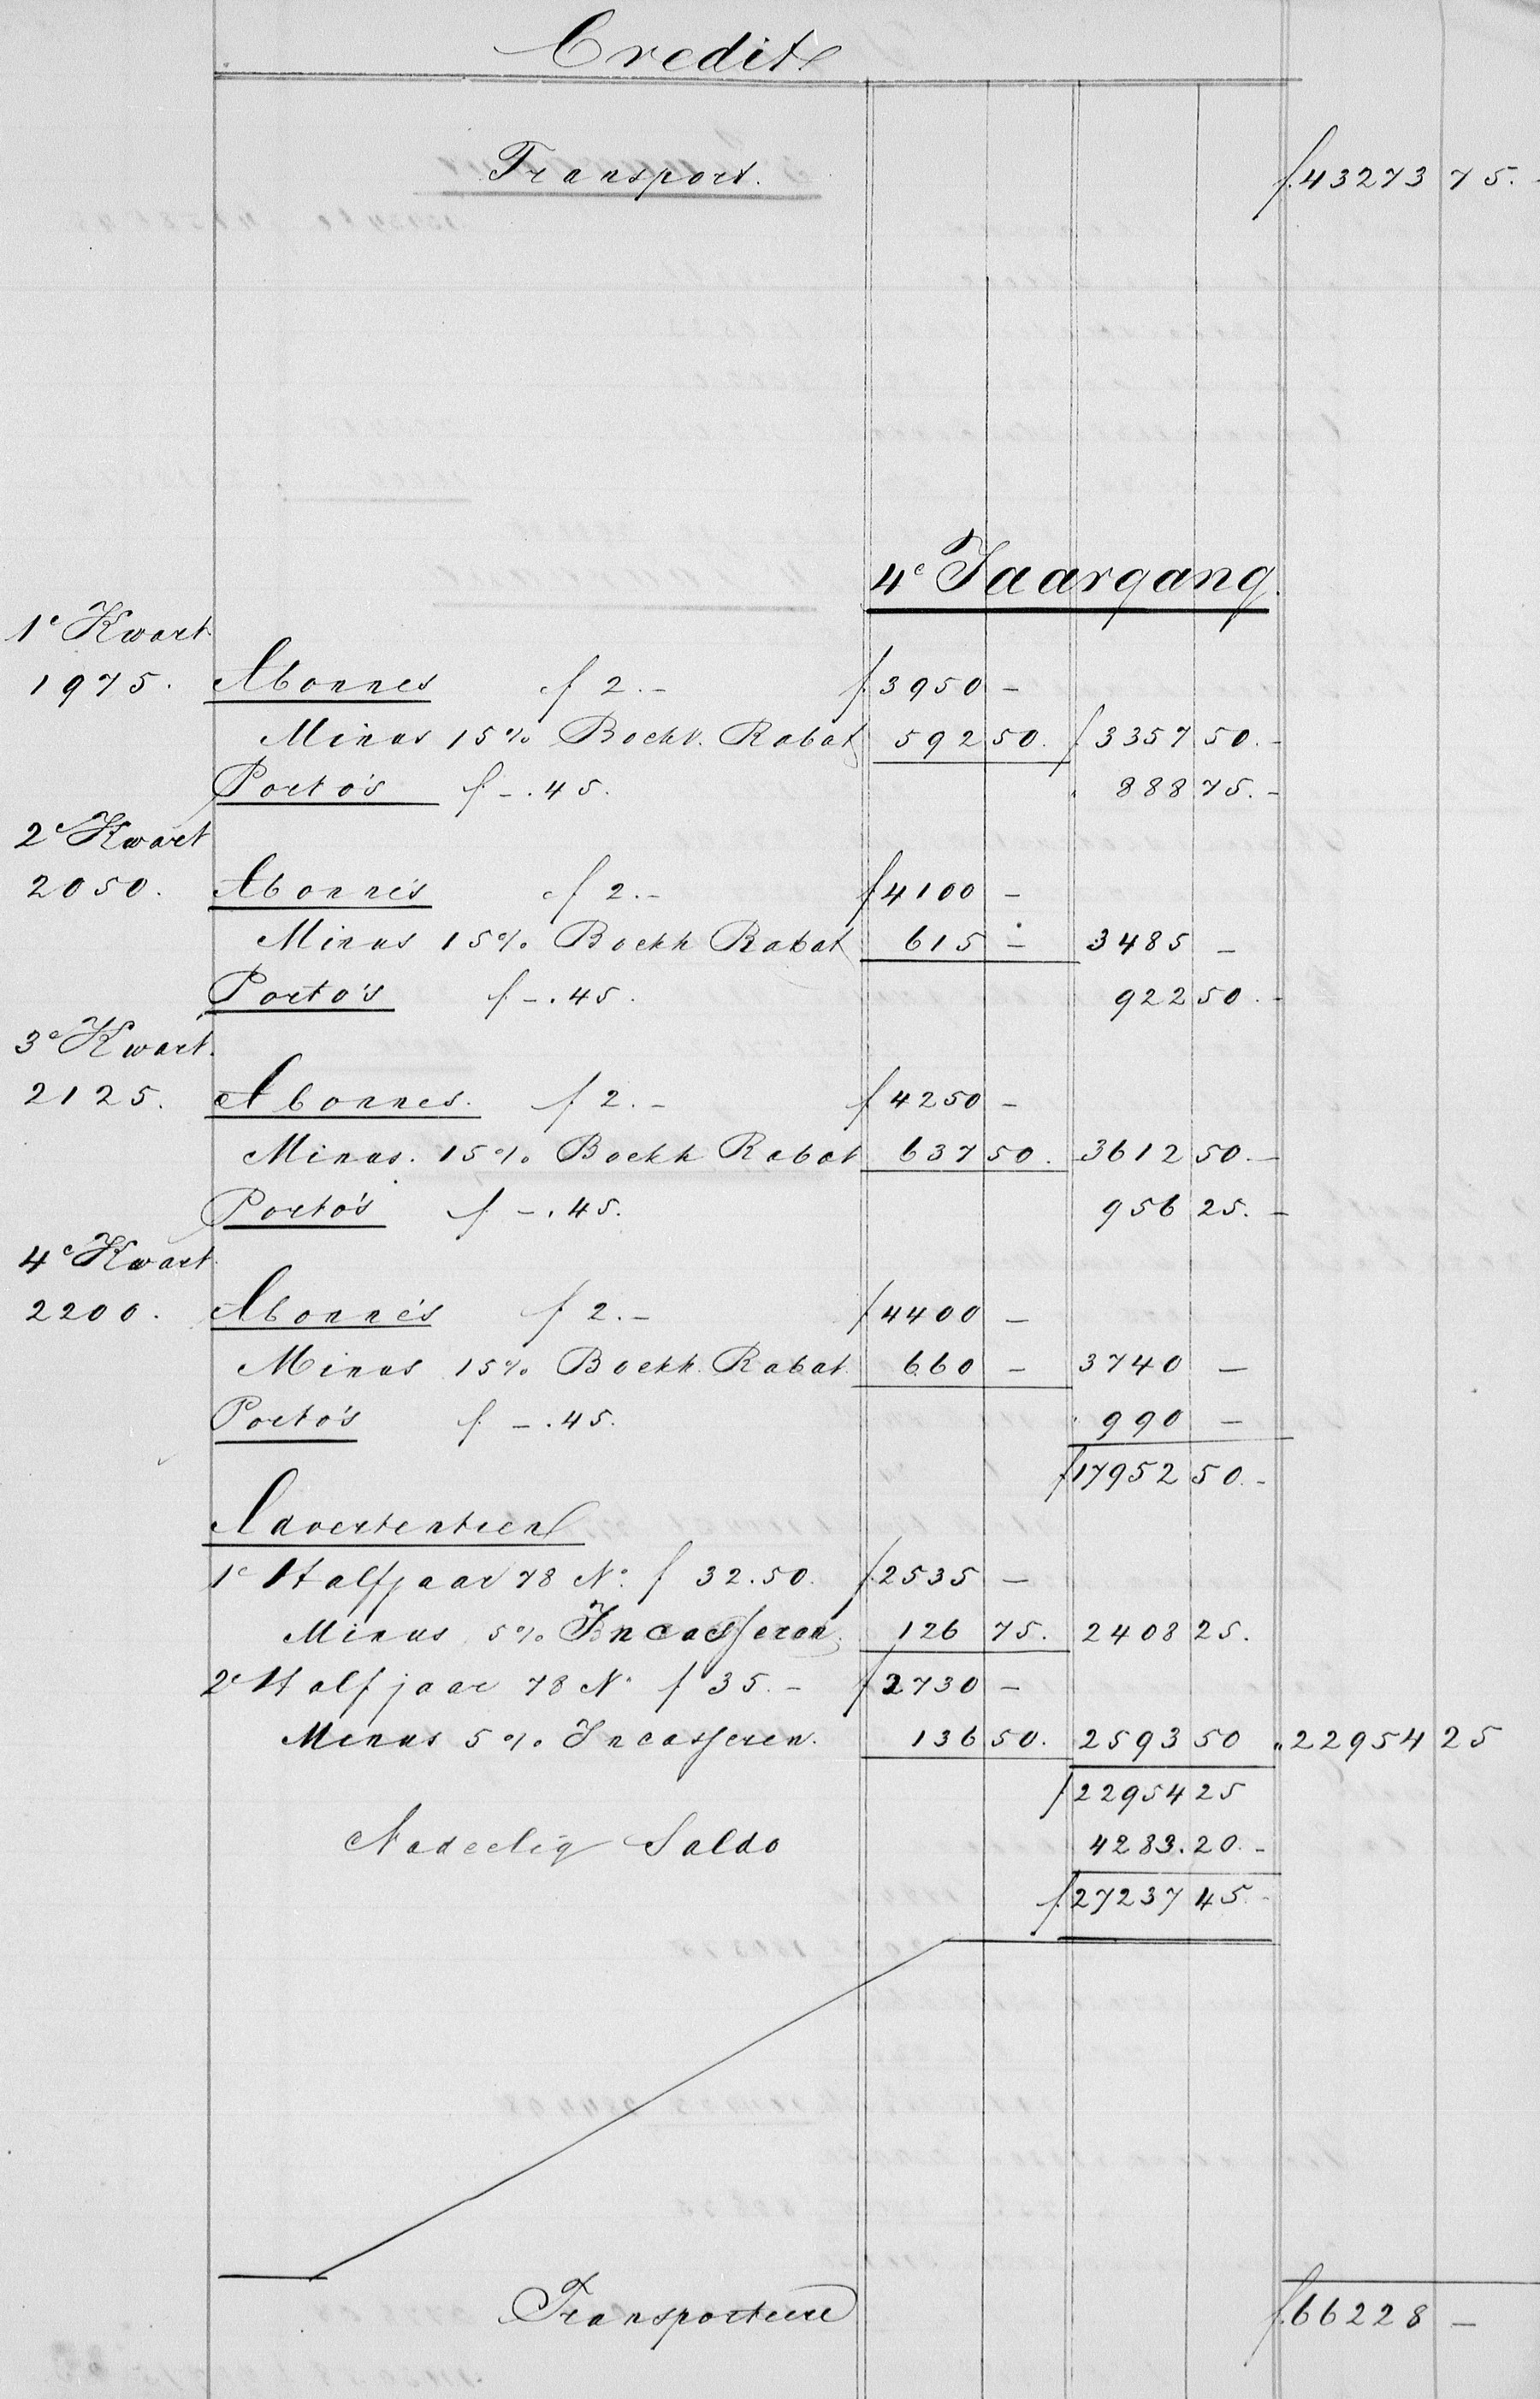 Credit
Transport. f. 43273 75.
4e Jaargang.
1e Kwart
1975. Abonnes f 2.- f. 3950 -
Minus 15% Boekh. Rabat 592 50. f 3357 50.-
Porto's f -.45. 888 75.-
2e Kwart
2050. Abonnés f 2.- f 4100 -
Minus 15% Boekh Rabat 615 - 3485 -
Porto's f -.45. 922 50.-
3e Kwart.
2125. Abonnes. f 2.- f 4250 -
Minus. 15% Boekh Rabat 637 50. 3612 50.-
Porto's f -.45. 956 25.-
4e Kwart.
2200. Abonnés f 2.- f 4400 -
Minus 15% Boekh. Rabat. 660 - 3740 -
Porto's f -.45. 990 -
f 17952 50.-
Advertentien
1e Halfjaar 78 No. f 32.50. f. 2535 -
Minus 5% Incasseren. 126 75. 2408 25.
2e Halfjaar 78 No f 35.- f 2730 -
Minus 5% Incasseren. 136 50. 2593 50 " 22954 25
f 22954 25
Nadeelig Saldo 4283.20.-
f. 27237 45.-
Transporteere f. 66228 -